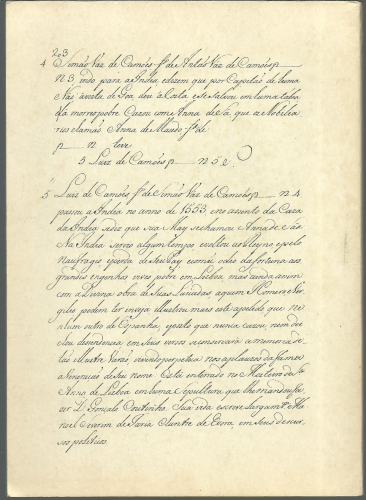 203
4 Simão Vaz de Camões fº de Antão Vaz de Camões p
n 3 indo para a India edizem que por Capitão de huma
Não á vista de Goa deu á Costa e se salvou em huma taboa
da morreo pobre Cazou com Anna de Sá que os Nobilia
rios clamão Anna de Masedo fª de
p n teve
5 Luiz de Camões p n 5 e
5 Luiz de Camões fº de Simão Vaz de Camões p n 4
passou a India no anno de 1553 e no asento da Caza
da India se diz que sua May se chamou Anna de Sá
Na India servio algum tempo e voltou ao Reyno e pelo
Naufragio e perda de seu Pay como odes da fortuna aos
grandes engenhos viveo pobre em Lisboa mas ainda assim
com a Divina obra de suas Luziadas a quem Homero e Vir
gilio podem ter enveja illustrou mais este apelido que ne
nhum outro de Espanha, e posto que nunca cazou, nem dei
xou descendencia em seus versos se conservará a memoria de
tão illustre Varão vivendo perpetuo nos aplauzos da fama
a Veneração de seu nome Está enterrado no Mosteiro de Sta
Anna de Lisboa em huma Sepultura que lhe mandou fa
zer D. Gonçalo Coutinho. Sua vida escreve largamte Ma
noel Severim de Faria Chantre de Evora em seus discur
sos politicos.